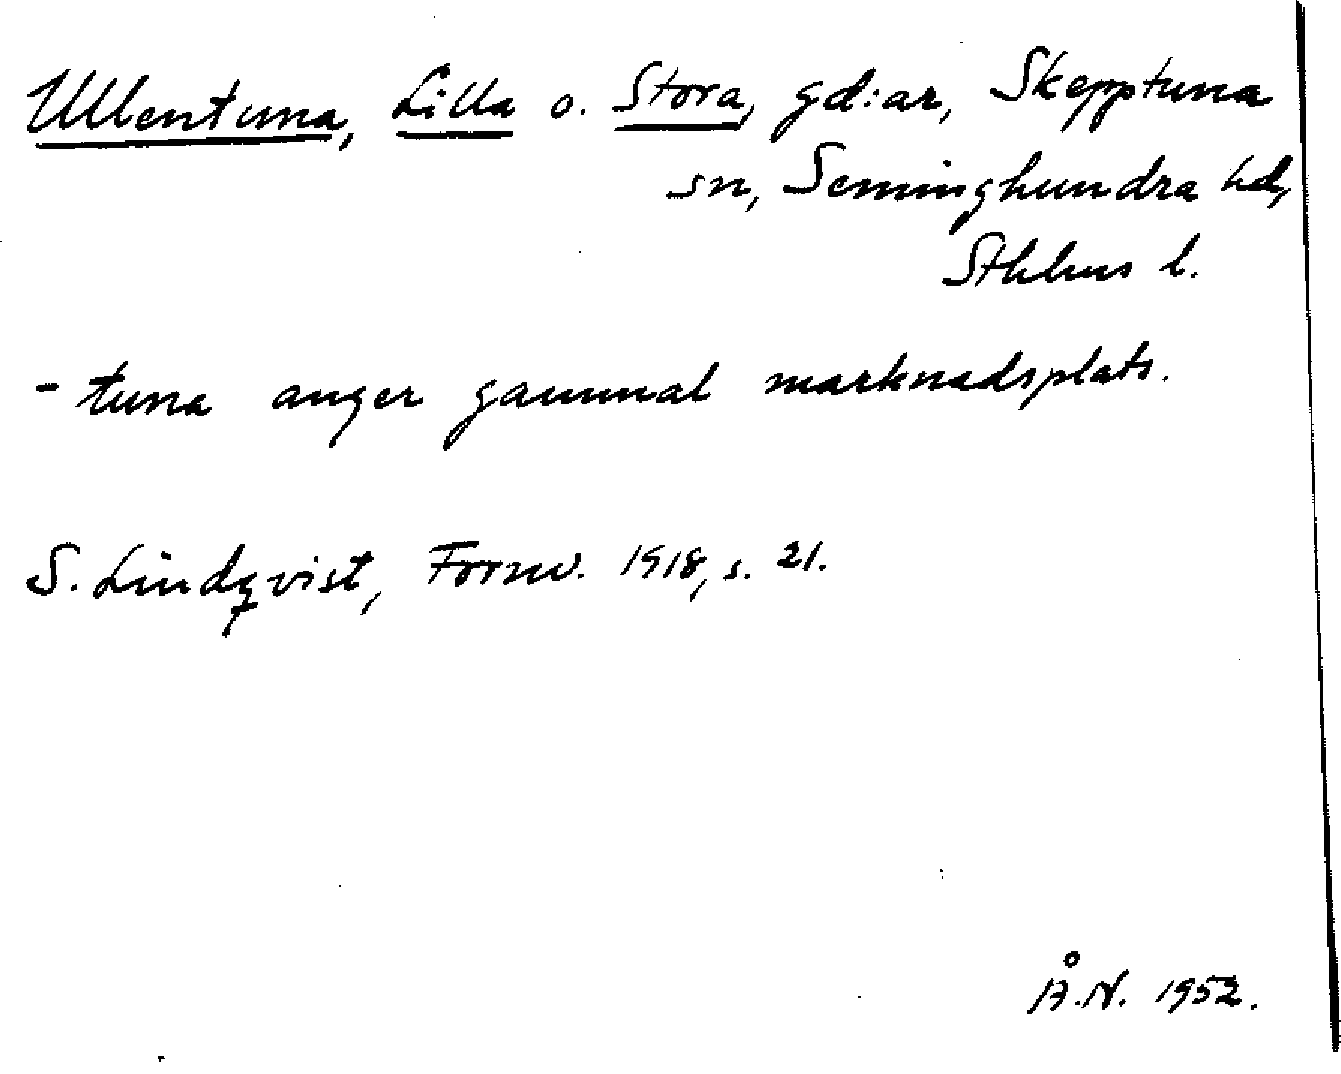 Ullentuna, Lilla o. Stora, gd:ar, Skepptuna
sn, Seminghundra hd,
Sthlms l.
-tuna anger gammal marknadsplats.
S. Lindqvist, Fornv. 1918, s. 21.
Å.N. 1952.